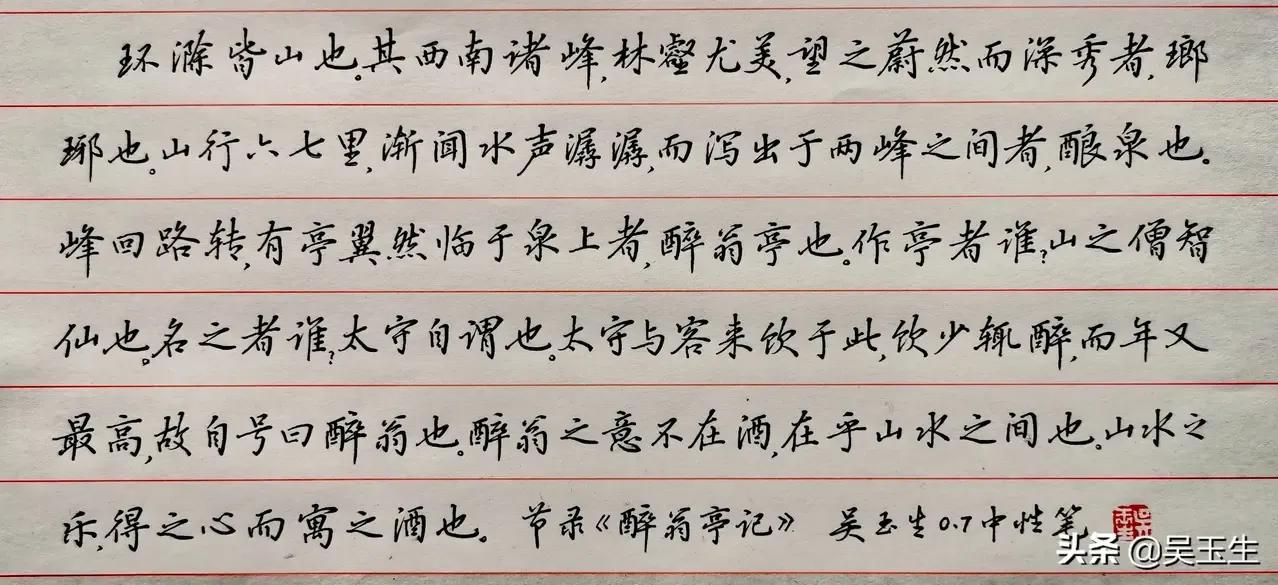 环滁皆山也。其西南诸峰,林壑尤美,望之蔚然而深秀者,琅
琊也。山行六七里,渐闻水声潺潺,而泻出于两峰之间者,酿泉也。
峰回路转,有亭翼然临于泉上者,醉翁亭也。作亭者谁?山之僧智
仙也。名之者谁?太守自谓也。太守与客来饮于此,饮少辄醉,而年又
最高,故自号曰醉翁也。醉翁之意不在酒,在乎山水之间也。山水之
乐,得之心而寓之酒也。 节录《醉翁亭记》 吴玉生0.7中性笔
头条 @吴玉生